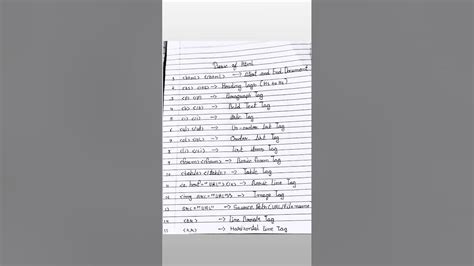 Basic of Html
<html> </html> → Start and End Document
<h1> </h1> → Heading Tags (H1 to H6)
<p> </p> → Paragraph Tag
<b> </b> → Bold Text Tag
<i> </i> → Italic Tag
<ul> </ul> → Un-order List Tag
<ol> </ol> → Order List Tag
<li> </li> → List Item Tag
<form> </form> → Form Tag
<table> </table> → Table Tag
<a href="URL"> </a> → Tag
<img src="URL"> → Image Tag
src="URL" → Source Path (URL/File name
→ Line Break Tag
→ Horizontal Line Tag